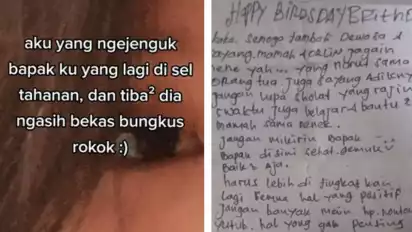 aku yang ngejenguk
bapak ku yang lagi di sel
tahanan, dan tiba² dia
ngasih bekas bungkus
rokok :)
HAPPY BIRDSDAY
semoga tambah Dewasa &
sayang, mamah
yah... yang nurut sama
orang tua juga sayang
jangan lupa sholat yang rajin
waktu juga belajar & bantu 2
mamah sama nenek.
jangan mikirin Bapak
Bapak disini sehat. gemuk
Baik2 aja.
harus lebih di tingkat kan
lagi semua hal yang positif
jangan banyak main hp. nonton
yutub. hal yang gak penting